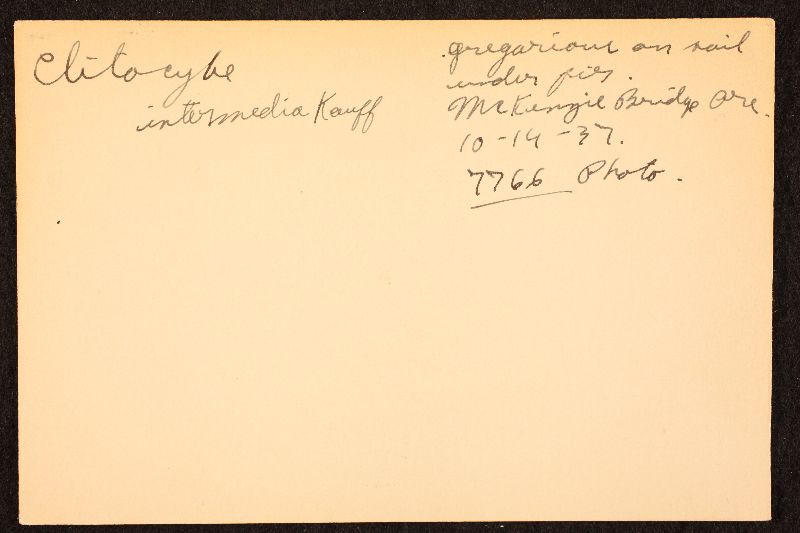 Clitocybe
intermedia Kauff
gregarious on soil
under firs.
McKenzie Bridge Ore.
10-14-37.
7766 Photo.